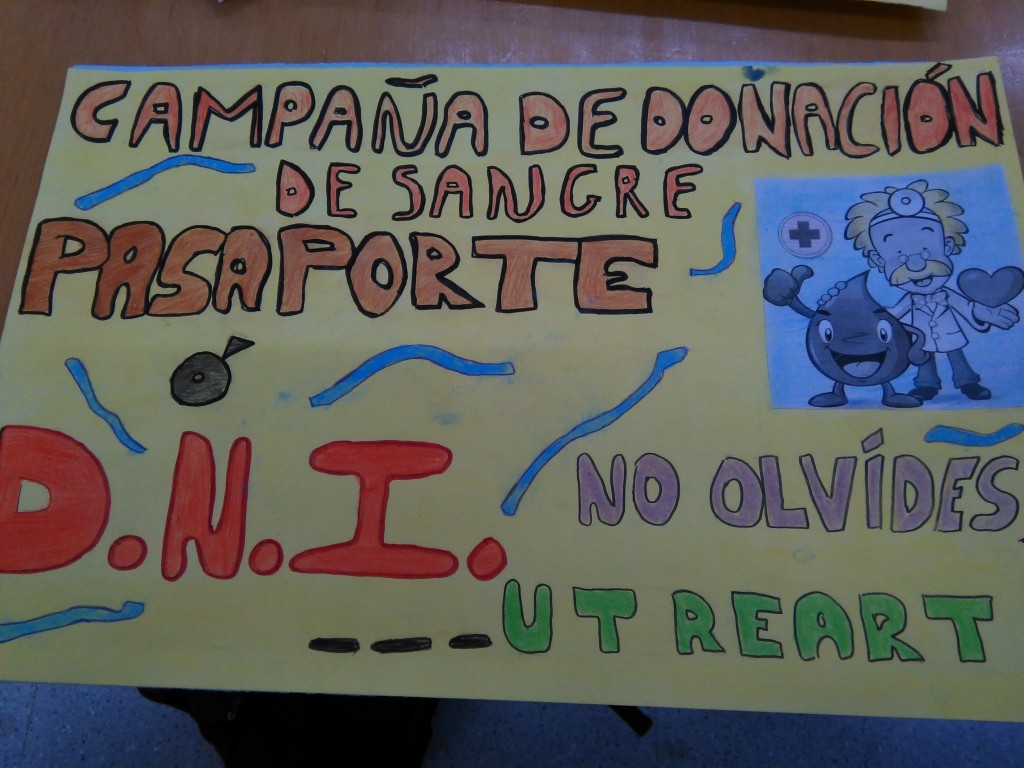 CAMPAÑA DE DONACIÓN
DE SANGRE
PASAPORTE
Ó
D.N.I.
NO OLVÍDES,
---UT REART